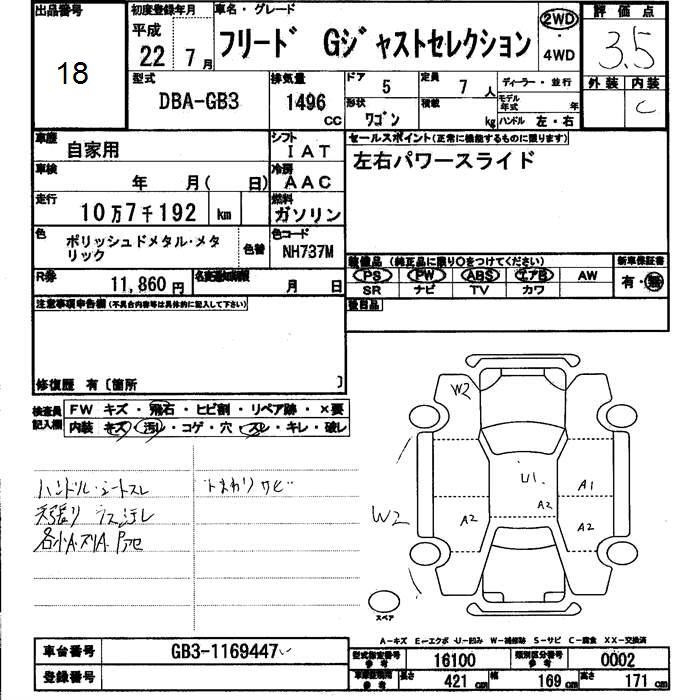 出品番号
18
初度登録年月
平成
22年 7月
車名・グレード
フリード Gジャストセレクション
2WD
・
4WD
評価点
3.5
外装 内装
C
型式
DBA-GB3
排気量
1496
CC
ドア
5
定員
7 人
形状
ワゴン
積載
kg
ディーラー・並行
モデル年式 年
ハンドル 左・右
車歴
自家用
シフト
IAT
車検
年 月( 日)
冷房
AAC
走行
10万7千192 km
燃料
ガソリン
色
ポリッシュドメタル・メタリック
色替
色コード
NH737M
R券
11,860円
名変通知期限
月 日
セールスポイント(正常に機能するものに限ります)
左右パワースライド
装備品 (純正品に限り○をつけてください)
PS PW ABS エアB AW
SR ナビ TV カワ
新車保証書
有・無
後日品
注意事項申告欄(不具合内容等は具体的に記入して下さい)
修復歴 有〔箇所 〕
検査員記入欄
FW キズ・飛石・ヒビ割・リペア跡・×要
内装 キズ・汚れ・コゲ・穴・スレ・キレ・破レ
ハンドル・シートスレ
下まわりサビ
天張り ラス汚レ
各小A・スリA・
W2
W2
U1
A1
A2
A2
A2
スペア
A-キズ E-エクボ U-凹み W-補修跡 S-サビ C-腐食 XX-交換済
車台番号
GB3-1169447
登録番号
型式指定番号
参考
16100
類別区分番号
参考
0002
車庫証明用
参考
長さ
421 cm
幅
169 cm
高さ
171 cm